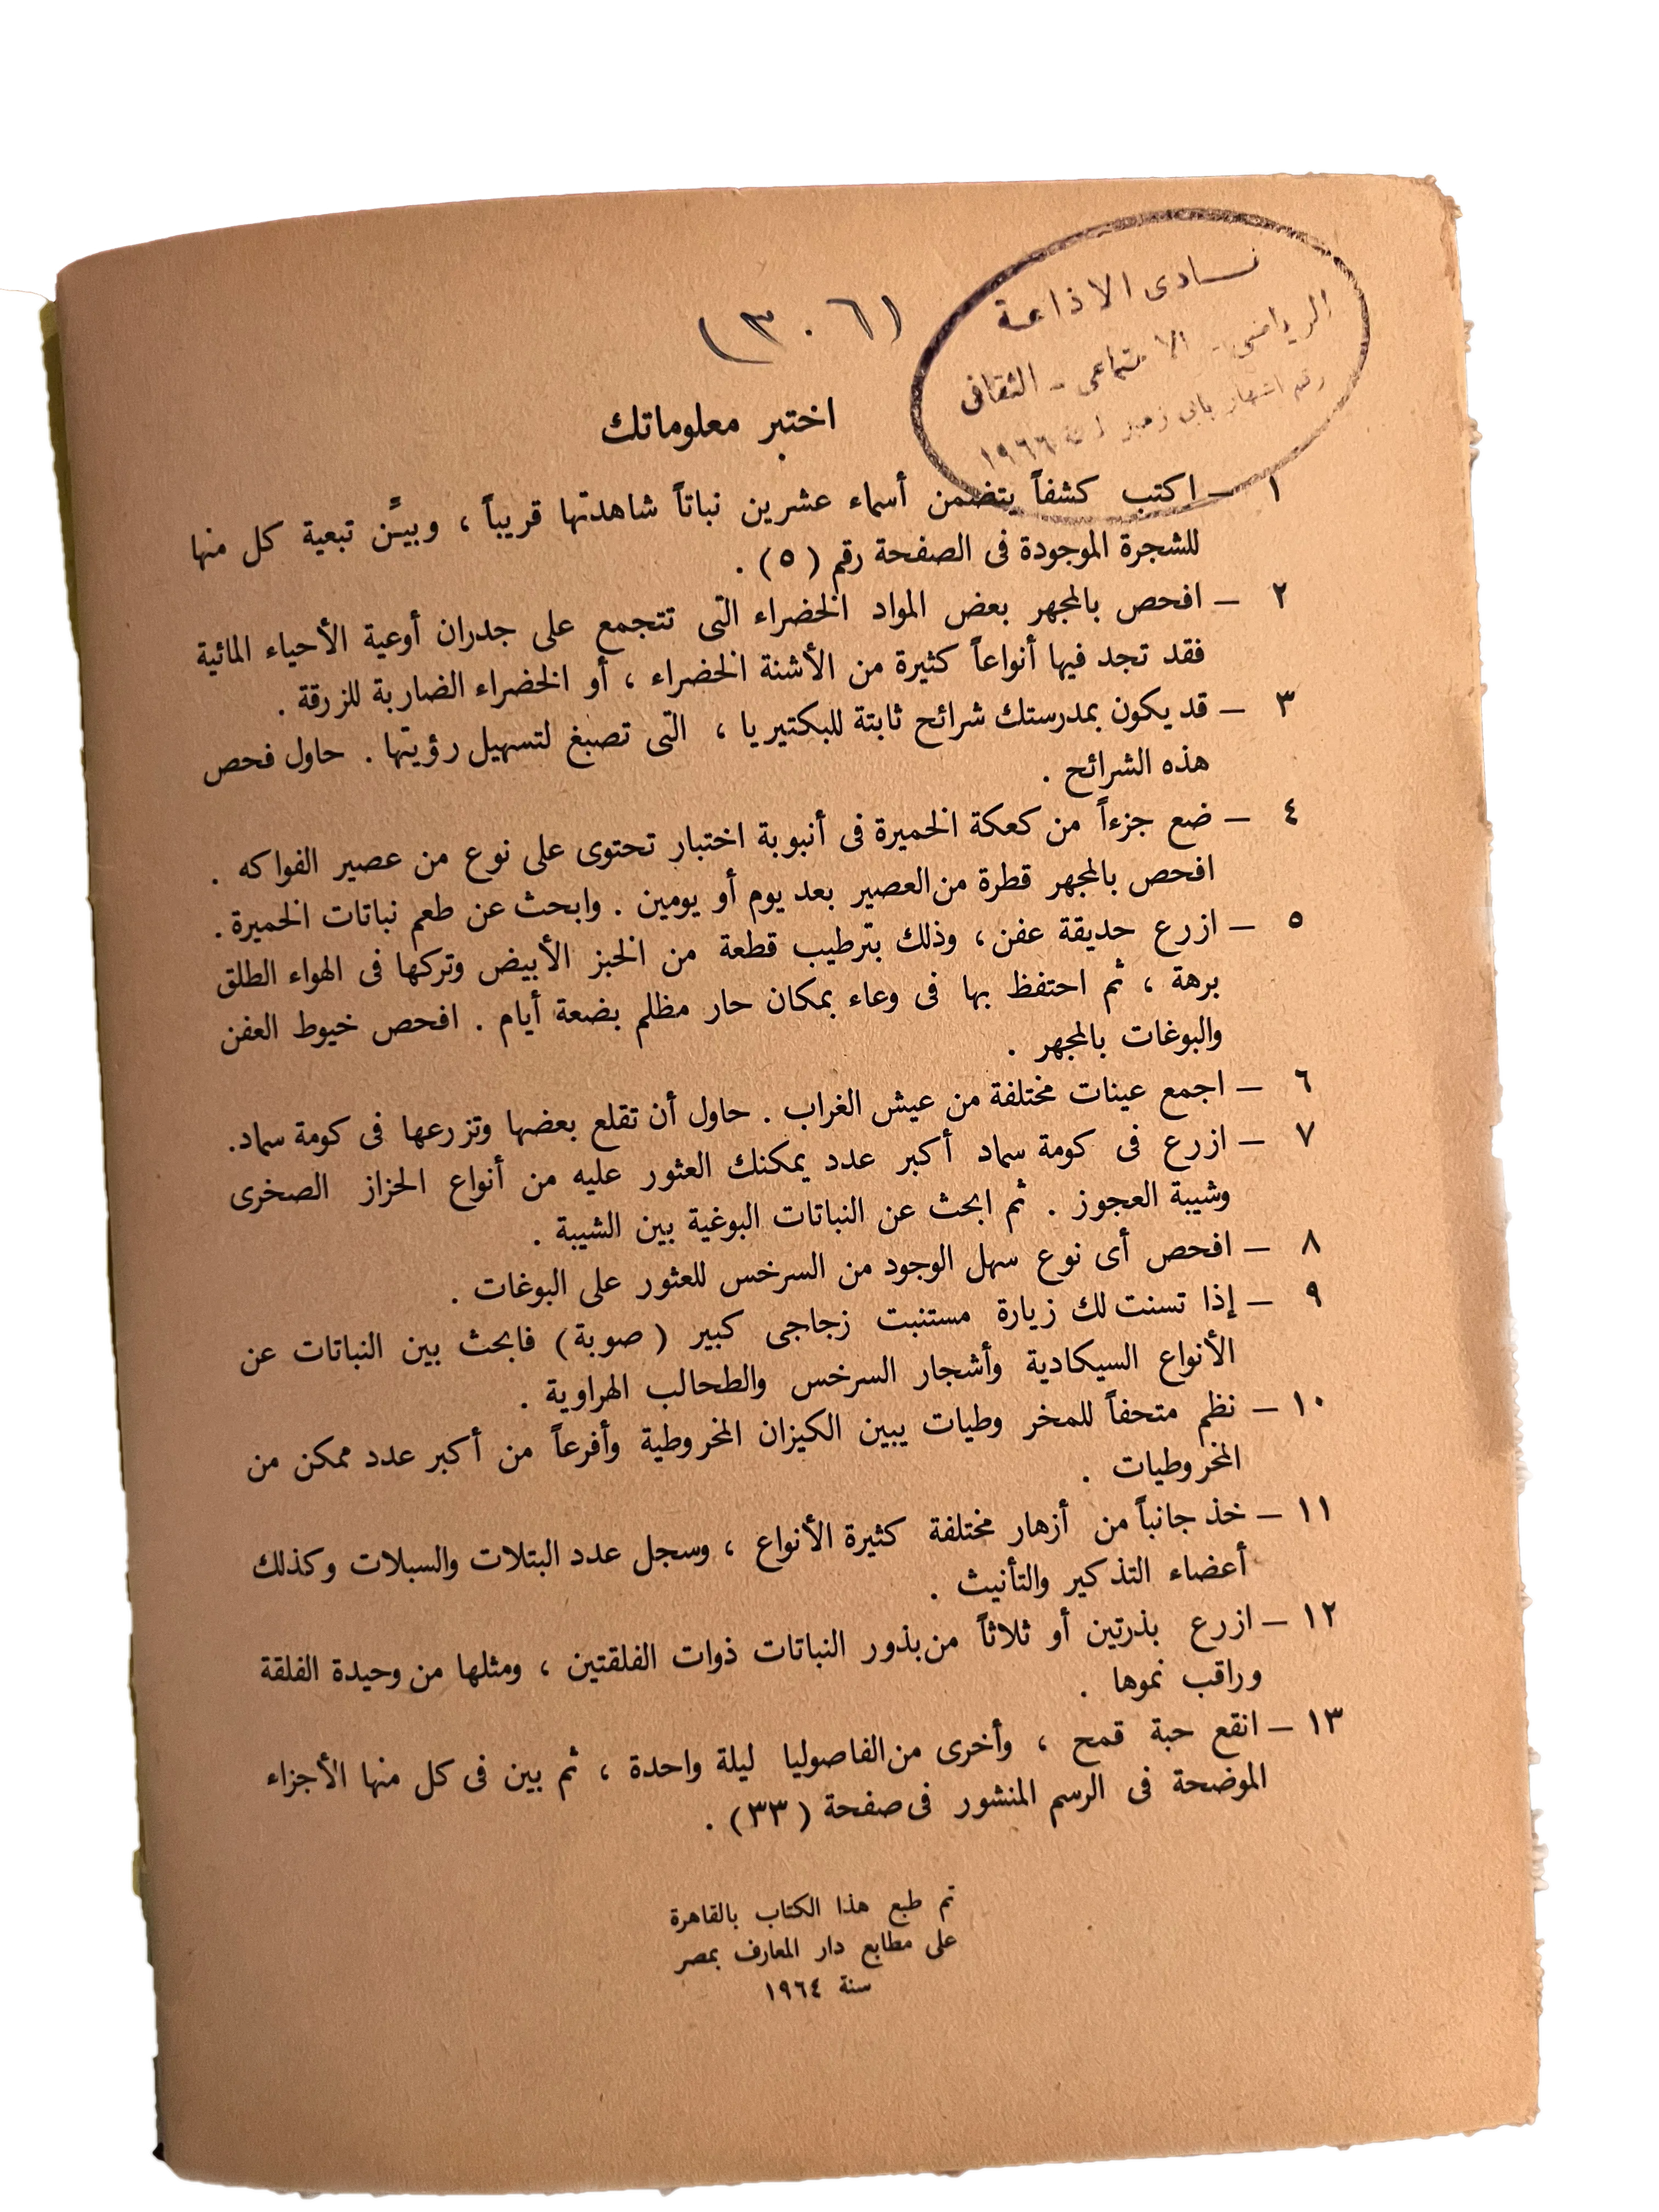 نادى الاذاعة
الرياضى - الاجتماعى - الثقافى
رقم اشهار
١٩٦٦
(٣٠٦)
اختبر معلوماتك
١ — اكتب كشفاً يتضمن أسماء عشرين نباتاً شاهدتها قريباً ، وبيِّن تبعية كل منها
للشجرة الموجودة فى الصفحة رقم ( ٥ ) .
٢ — افحص بالمجهر بعض المواد الخضراء التى تتجمع على جدران أوعية الأحياء المائية
فقد تجد فيها أنواعاً كثيرة من الأشنة الخضراء ، أو الخضراء الضاربة للزرقة .
٣ — قد يكون بمدرستك شرائح ثابتة للبكتيريا ، التى تصبغ لتسهيل رؤيتها . حاول فحص
هذه الشرائح .
٤ — ضع جزءاً من كعكة الخميرة فى أنبوبة اختبار تحتوى على نوع من عصير الفواكه .
افحص بالمجهر قطرة من العصير بعد يوم أو يومين . وابحث عن طعم نباتات الخميرة .
٥ — ازرع حديقة عفن ، وذلك بترطيب قطعة من الخبز الأبيض وتركها فى الهواء الطلق
برهة ، ثم احتفظ بها فى وعاء بمكان حار مظلم بضعة أيام . افحص خيوط العفن
والبوغات بالمجهر .
٦ — اجمع عينات مختلفة من عيش الغراب . حاول أن تقلع بعضها وتزرعها فى كومة سماد.
٧ — ازرع فى كومة سماد أكبر عدد يمكنك العثور عليه من أنواع الحزاز الصخرى
وشيبة العجوز . ثم ابحث عن النباتات البوغية بين الشيبة .
٨ — افحص أى نوع سهل الوجود من السرخس للعثور على البوغات .
٩ — إذا تسنت لك زيارة مستنبت زجاجى كبير ( صوبة ) فابحث بين النباتات عن
الأنواع السيكادية وأشجار السرخس والطحالب الهراوية .
١٠ — نظم متحفاً للمخروطيات يبين الكيزان المخروطية وأفرعاً من أكبر عدد ممكن من
المخروطيات .
١١ — خذ جانباً من أزهار مختلفة كثيرة الأنواع ، وسجل عدد البتلات والسبلات وكذلك
أعضاء التذكير والتأنيث .
١٢ — ازرع بذرتين أو ثلاثاً من بذور النباتات ذوات الفلقتين ، ومثلها من وحيدة الفلقة
وراقب نموها .
١٣ — انقع حبة قمح ، وأخرى من الفاصوليا ليلة واحدة ، ثم بين فى كل منها الأجزاء
الموضحة فى الرسم المنشور فى صفحة ( ٣٣ ) .
تم طبع هذا الكتاب بالقاهرة
على مطابع دار المعارف بمصر
سنة ١٩٦٤